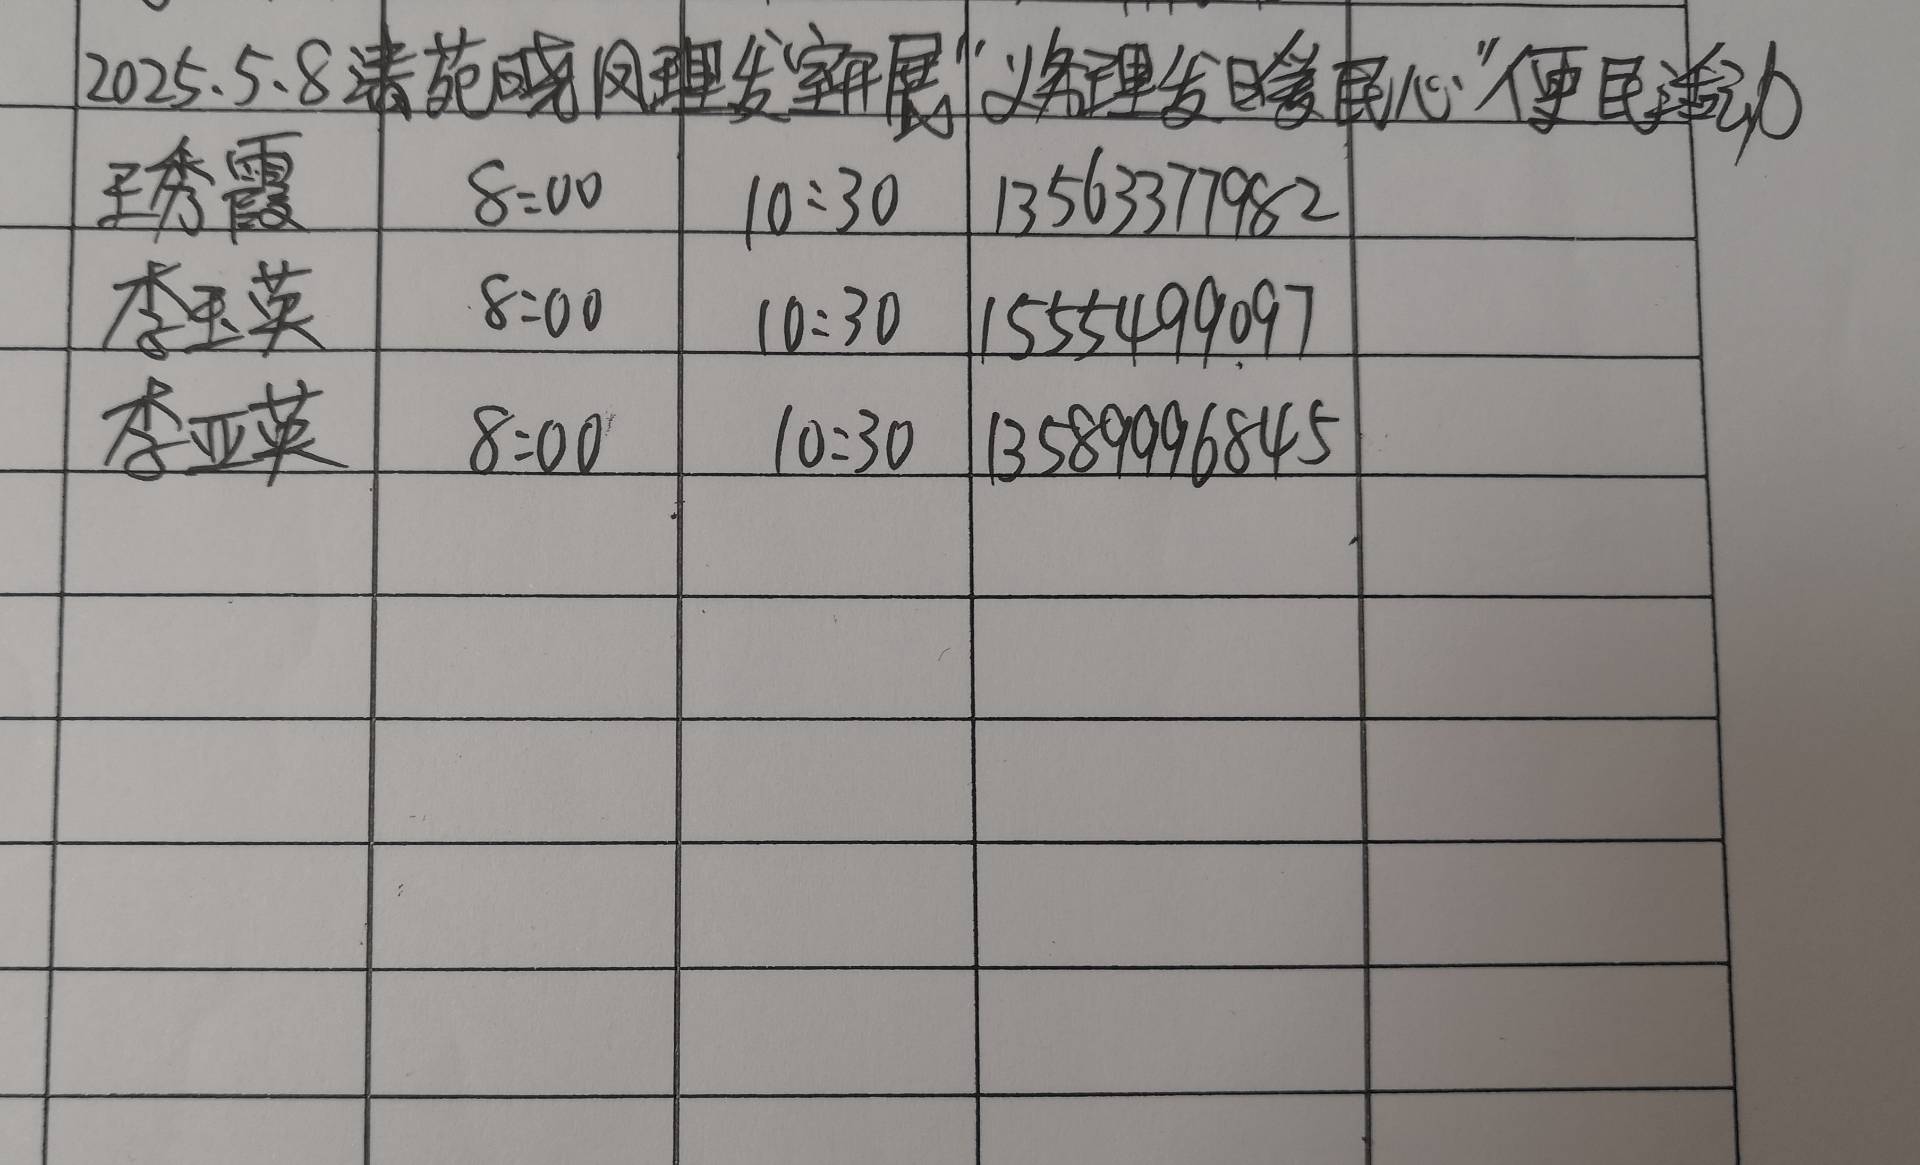 2025.5.8清苑晓风理发室开展“义务理发暖民心”便民活动
王秀霞 8:00 10:30 13563377982
李玉英 8:00 10:30 15554499097
李亚英 8:00 10:30 13589996845